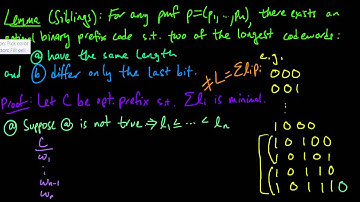 Lemma (Siblings): For any pmf p=(p₁,…,pₙ), there exists an
optimal binary prefix code s.t. two of the longest codewords:
ⓐ have the same length
and ⓑ differ only the last bit.
≠ L = Σ lᵢpᵢ
Proof: Let C be opt. prefix s.t. Σ lᵢ is minimal.
ⓐ Suppose ⓐ is not true ⇒ l₁ ≤ … < lₙ
C
w₁
⋮
wₙ₋₁
wₙ
e.g.
000
001
⋮
1000
10100
10101
10110
101110